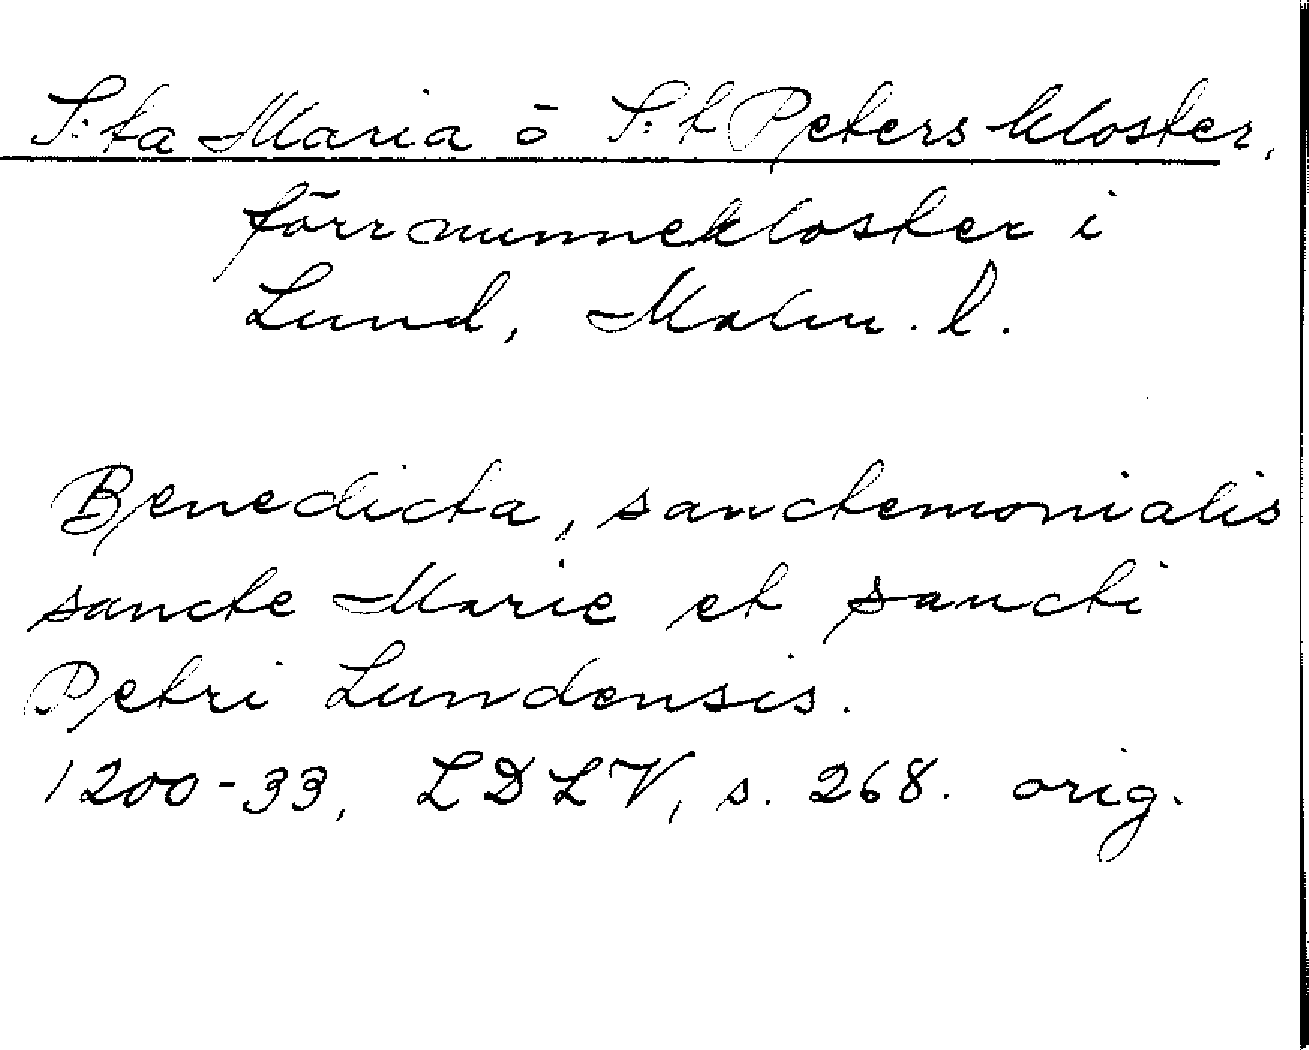 S:ta Maria o S:t Peters kloster,
förr nunnekloster i
Lund, Malm. l.
Benedicta, sanctemonialis
sancte Marie et sancti
Petri Lundensis.
1200-33, LDLV, s. 268. orig.